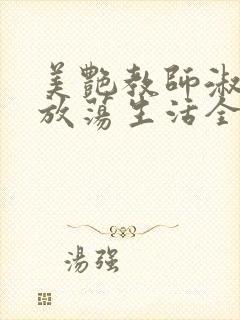 美艷教師淑
放蕩生活全
湯强